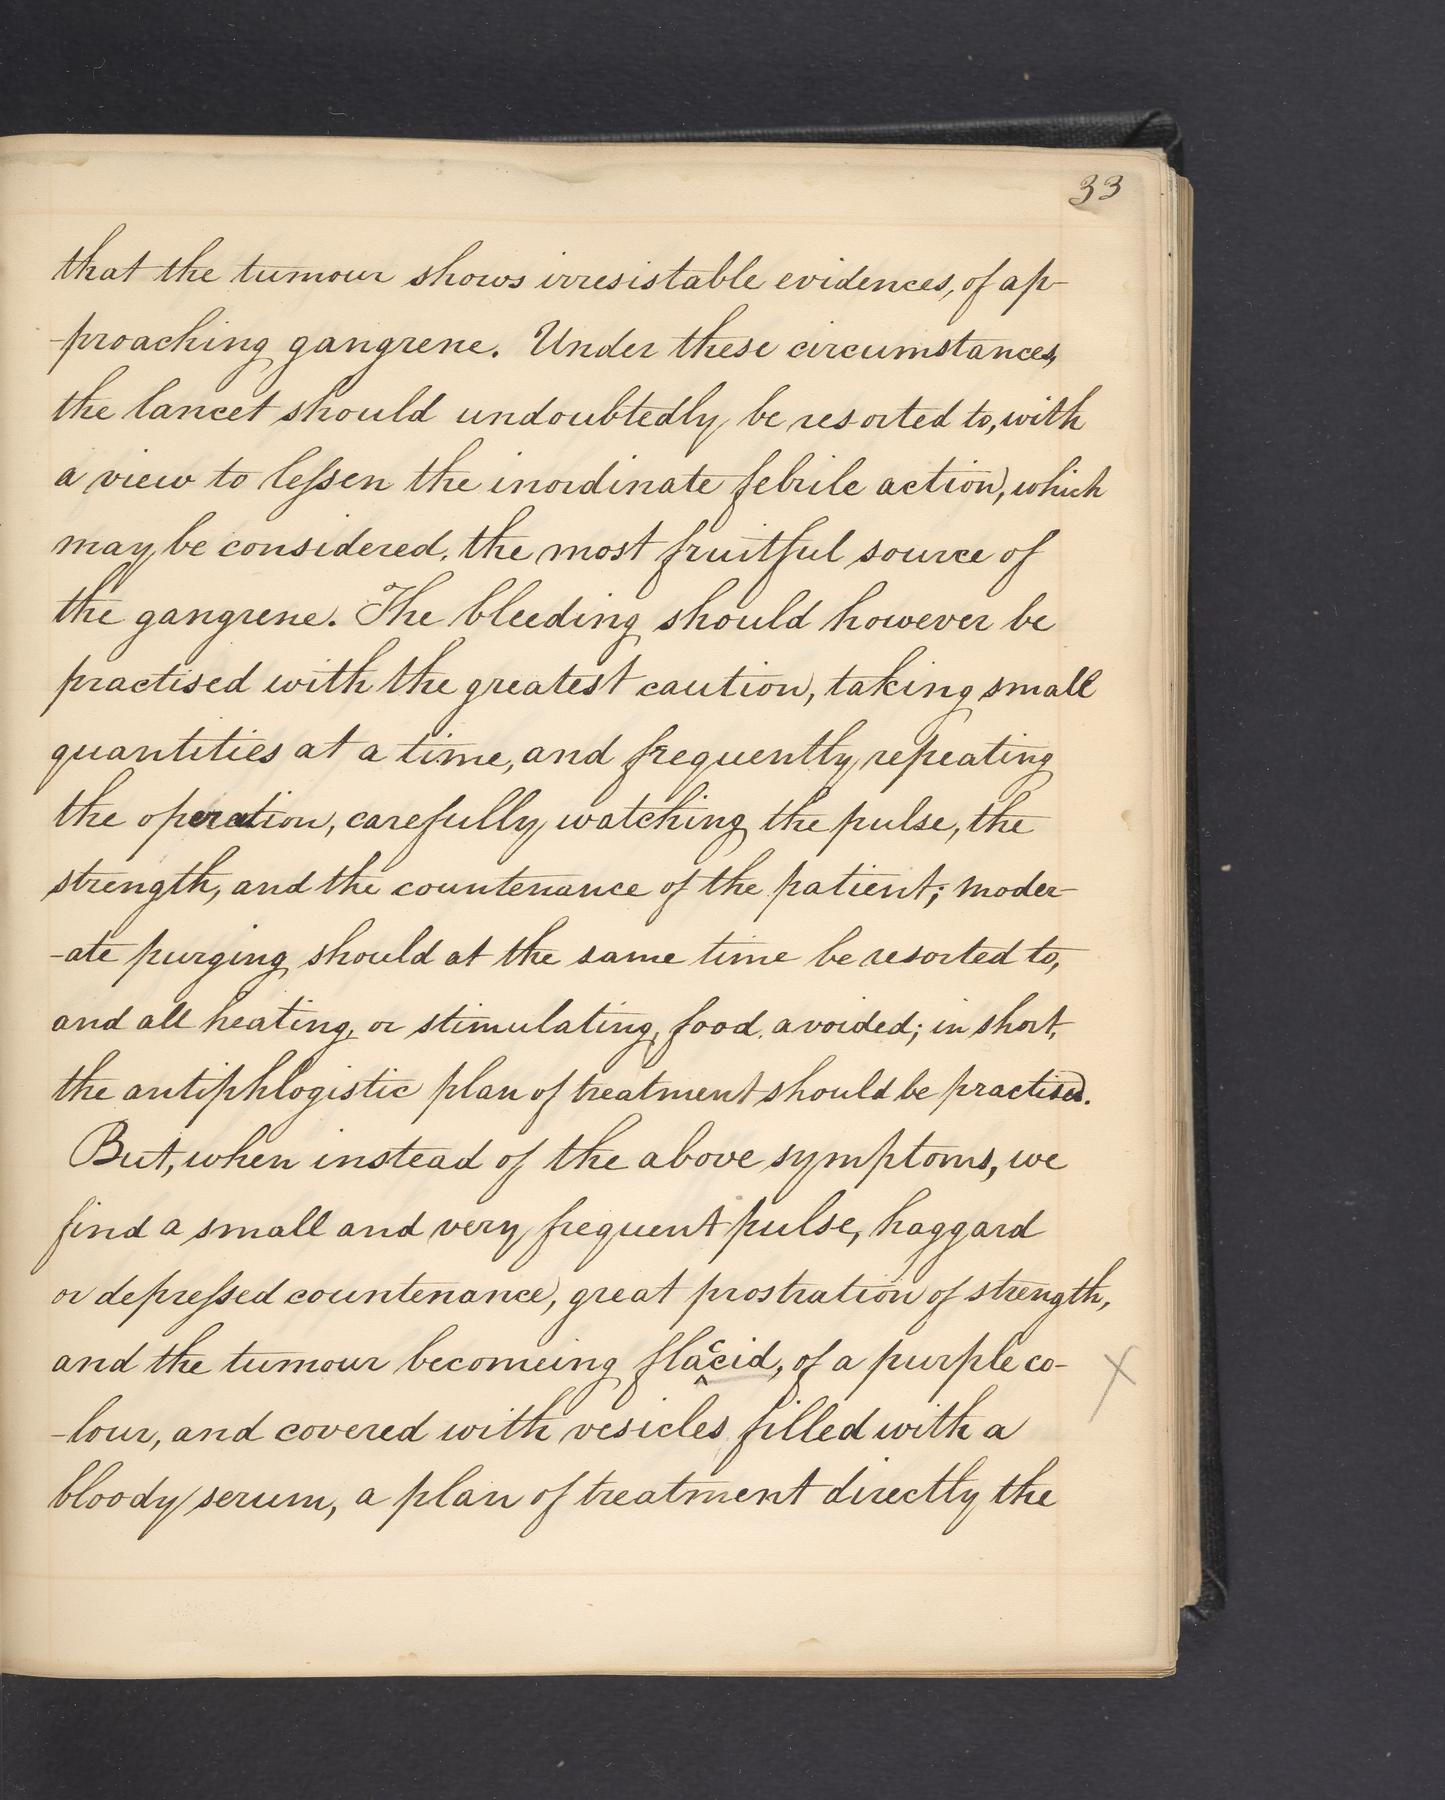 33
that the tumour shows irresistable evidences, of ap-
-proaching gangrene. Under these circumstances,
the lancet should undoubtedly be resorted to, with
a view to leſsen the inordinate febrile action, which
may be considered, the most fruitful source of
the gangrene. The bleeding should however be
practised with the greatest caution, taking small
quantities at a time, and frequently repeating
the operation, carefully watching the pulse, the
strength, and the countenance of the patient; moder-
-ate purging should at the same time be resorted to,
and all heating, or stimulating, food, avoided; in short,
the antiphlogistic plan of treatment should be practised.
But, when instead of the above symptoms, we
find a small and very frequent pulse, haggard
or depreſsed countenance, great prostration of strength,
and the tumour becomeing flaccid, of a purple co-
-lour, and covered with vesicles filled with a
bloody serum, a plan of treatment directly the